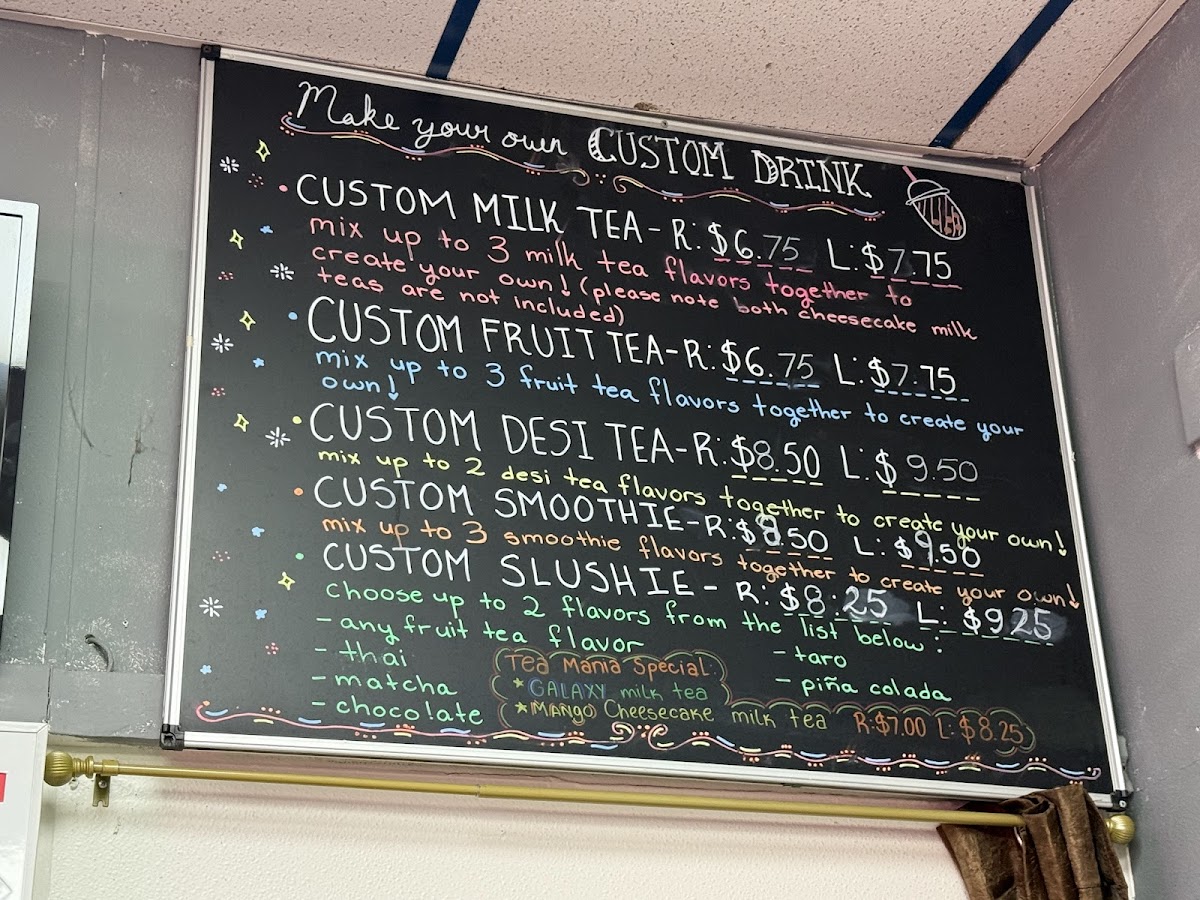 Make your own CUSTOM DRINK
• CUSTOM MILK TEA - R: $6.75 L: $7.75
mix up to 3 milk tea flavors together to
create your own! (please note both cheesecake milk
teas are not included)
• CUSTOM FRUIT TEA - R: $6.75 L: $7.75
mix up to 3 fruit tea flavors together to create your
own!
• CUSTOM DESI TEA - R: $8.50 L: $9.50
mix up to 2 desi tea flavors together to create your own!
• CUSTOM SMOOTHIE - R: $8.50 L: $9.50
mix up to 3 smoothie flavors together to create your own!
• CUSTOM SLUSHIE - R: $8.25 L: $9.25
Choose up to 2 flavors from the list below:
- any fruit tea flavor
- thai
- matcha
- chocolate
- taro
- piña colada
Tea Mania Special:
* GALAXY milk tea
* MANGO Cheesecake milk tea R: $7.00 L: $8.25